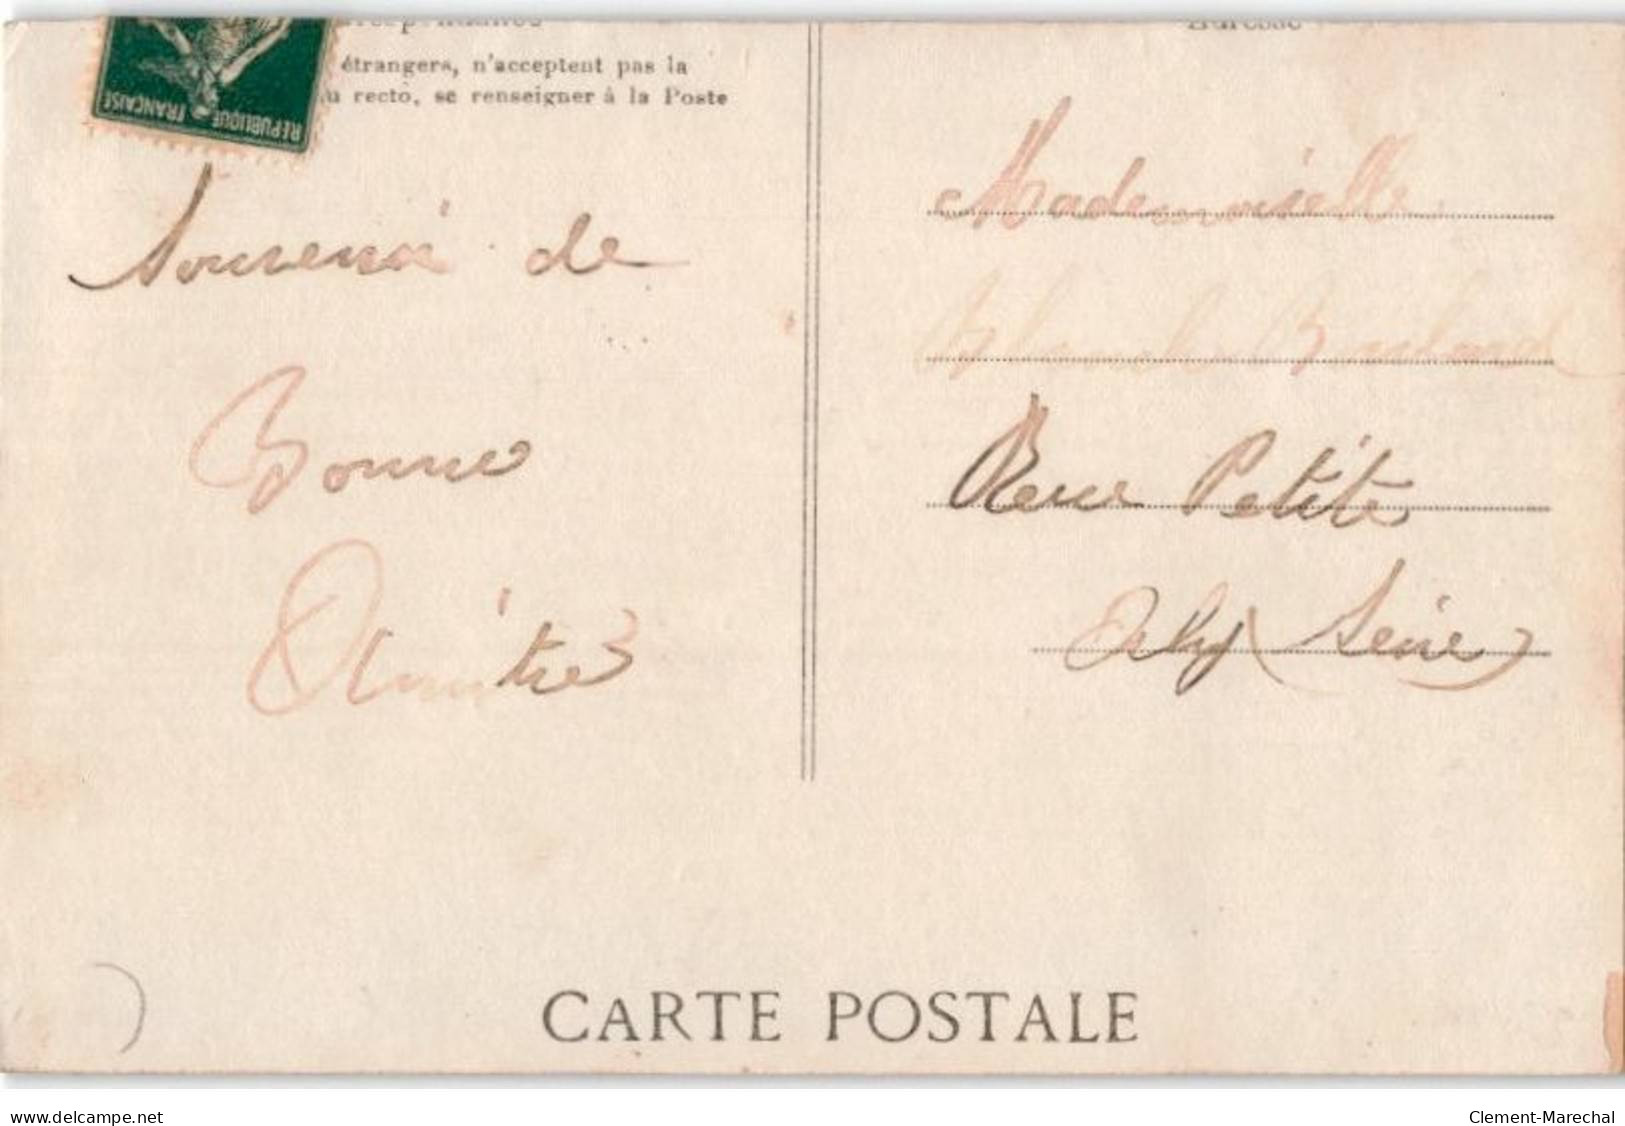 étrangers, n'acceptent pas la
recto, se renseigner à la Poste
RÉPUBLIQUE FRANÇAISE
Souvenir de
Bonne
Amitié
Adresse
Mademoiselle
Blanche
Rue Petite
Orly (Seine)
CARTE POSTALE
www.delcampe.net
Clement-Marechal